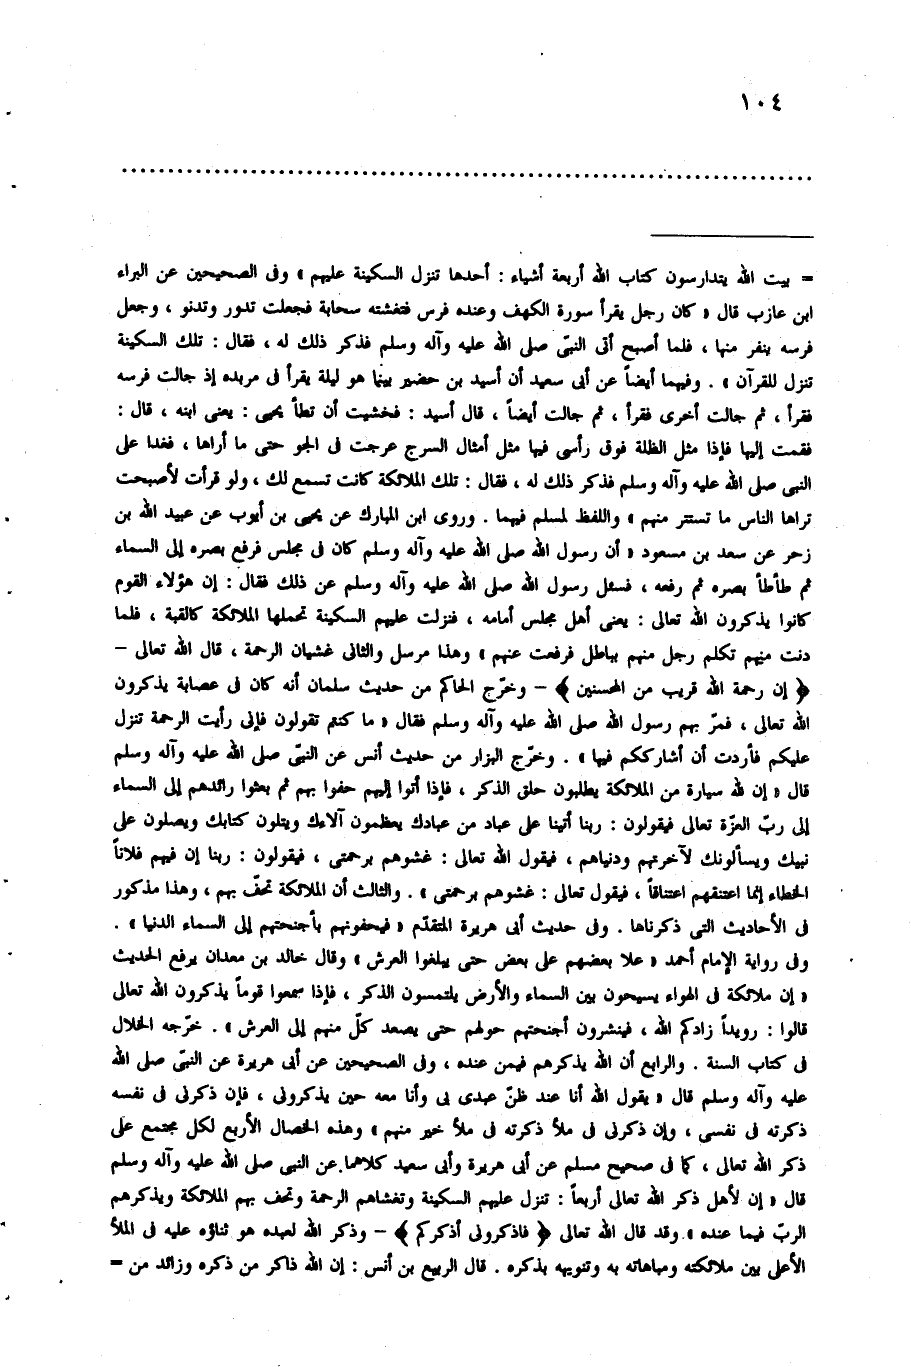 ١٠٤
= بيت الله يتدارسون كتاب الله أربعة أشياء : أحدها تنزل السكينة عليهم » وفى الصحيحين عن البراء
ابن عازب قال « كان رجل يقرأ سورة الكهف وعنده فرس فتغشته سحابة فجعلت تدور وتدنو ، وجعل
فرسه ينفر منها ، فلما أصبح أتى النبىّ صلى الله عليه وآله وسلم فذكر ذلك له ، فقال : تلك السكينة
تنزل للقرآن » . وفيهما أيضاً عن أبى سعيد أن أسيد بن حضير بينما هو ليلة يقرأ فى مربده إذ جالت فرسه
فقرأ ، ثم جالت أخرى فقرأ ، ثم جالت أيضاً ، قال أسيد : فخشيت أن تطأ يحيى : يعنى ابنه ، قال :
فقمت إليها فإذا مثل الظلة فوق رأسى فيها مثل أمثال السرج عرجت فى الجو حتى ما أراها ، فغدا على
النبى صلى الله عليه وآله وسلم فذكر ذلك له ، فقال : تلك الملائكة كانت تسمع لك ، ولو قرأت لأصبحت
تراها الناس ما تستتر منهم » واللفظ لمسلم فيهما . وروى ابن المبارك عن يحيى بن أيوب عن عبيد الله بن
زحر عن سعد بن مسعود « أن رسول الله صلى الله عليه وآله وسلم كان فى مجلس فرفع بصره إلى السماء
ثم طأطأ بصره ثم رفعه ، فسئل رسول الله صلى الله عليه وآله وسلم عن ذلك فقال : إن هؤلاء القوم
كانوا يذكرون الله تعالى : يعنى أهل مجلس أمامه ، فنزلت عليهم السكينة تحملها الملائكة كالقبة ، فلما
دنت منهم تكلم رجل منهم بباطل فرفعت عنهم » وهذا مرسل والثانى غشيان الرحمة ، قال الله تعالى –
﴿ إن رحمة الله قريب من المحسنين ﴾ – وخرّج الحاكم من حديث سلمان أنه كان فى عصابة يذكرون
الله تعالى ، فمرّ بهم رسول الله صلى الله عليه وآله وسلم فقال « ما كنتم تقولون فإنى رأيت الرحمة تنزل
عليكم فأردت أن أشارككم فيها » . وخرّج البزار من حديث أنس عن النبىّ صلى الله عليه وآله وسلم
قال « إن لله سيارة من الملائكة يطلبون حلق الذكر ، فإذا أتوا إليهم حفوا بهم ثم بعثوا رائدهم إلى السماء
إلى ربّ العزّة تعالى فيقولون : ربنا أتينا على عباد من عبادك يعظمون آلاءك ويتلون كتابك ويصلون على
نبيك ويسألونك لآخرتهم ودنياهم ، فيقول الله تعالى : غشوهم برحمتى ، فيقولون : ربنا إن فيهم فلاناً
الخطاء إنما اعتنقهم اعتناقاً ، فيقول تعالى : غشوهم برحمتى » . والثالث أن الملائكة تحفّ بهم ، وهذا مذكور
فى الأحاديث التى ذكرناها . وفى حديث أبى هريرة المتقدّم « فيحفونهم بأجنحتهم إلى السماء الدنيا » .
وفى رواية الإمام أحمد « علا بعضهم على بعض حتى يبلغوا العرش » وقال خالد بن معدان يرفع الحديث
« إن ملائكة فى الهواء يسيحون بين السماء والأرض يلتمسون الذكر ، فإذا سمعوا قوماً يذكرون الله تعالى
قالوا : رويداً زادكم الله ، فينشرون أجنحتهم حولهم حتى يصعد كلّ منهم إلى العرش » . خرّجه الخلال
فى كتاب السنة . والرابع أن الله يذكرهم فيمن عنده ، وفى الصحيحين عن أبى هريرة عن النبىّ صلى الله
عليه وآله وسلم قال « يقول الله أنا عند ظنّ عبدى بى وأنا معه حين يذكرونى ، فإن ذكرنى فى نفسه
ذكرته فى نفسى ، وإن ذكرنى فى ملأ ذكرته فى ملأ خير منهم » وهذه الخصال الأربع لكل مجتمع على
ذكر الله تعالى ، كما فى صحيح مسلم عن أبى هريرة وأبى سعيد كلاهما عن النبى صلى الله عليه وآله وسلم
قال « إن لأهل ذكر الله تعالى أربعاً : تنزل عليهم السكينة وتغشاهم الرحمة وتحف بهم الملائكة ويذكرهم
الربّ فيما عنده » وقد قال الله تعالى ﴿ فاذكرونى أذكركم ﴾ – وذكر الله لعبده هو ثناؤه عليه فى الملأ
الأعلى بين ملائكته ومباهاته به وتنويهه بذكره . قال الربيع بن أنس : إن الله ذاكر من ذكره وزائد من =